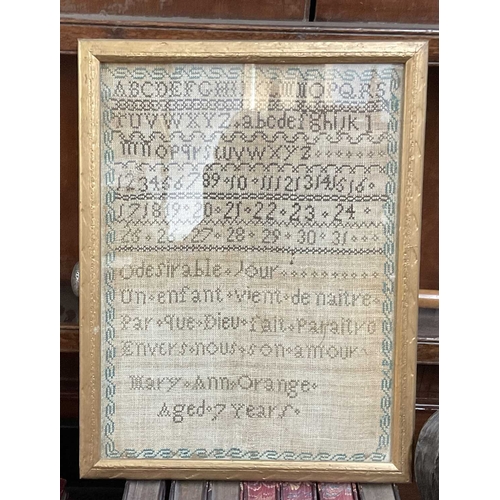 ABCDEFGHI MNOPQRS
TUVWXYZ abcdefghijkl
mnopqrstuvwxyz
1 2 3 4 5 6 7 8 9 10 11 12 13 14 15 16
17 18 19 20 21 22 23 24
25 26 27 28 29 30 31
O desirable Jour
Un enfant vient de naître
Par que Dieu fait Paraitro
Envers nous son amour
Mary Ann Orange
Aged 7 Years